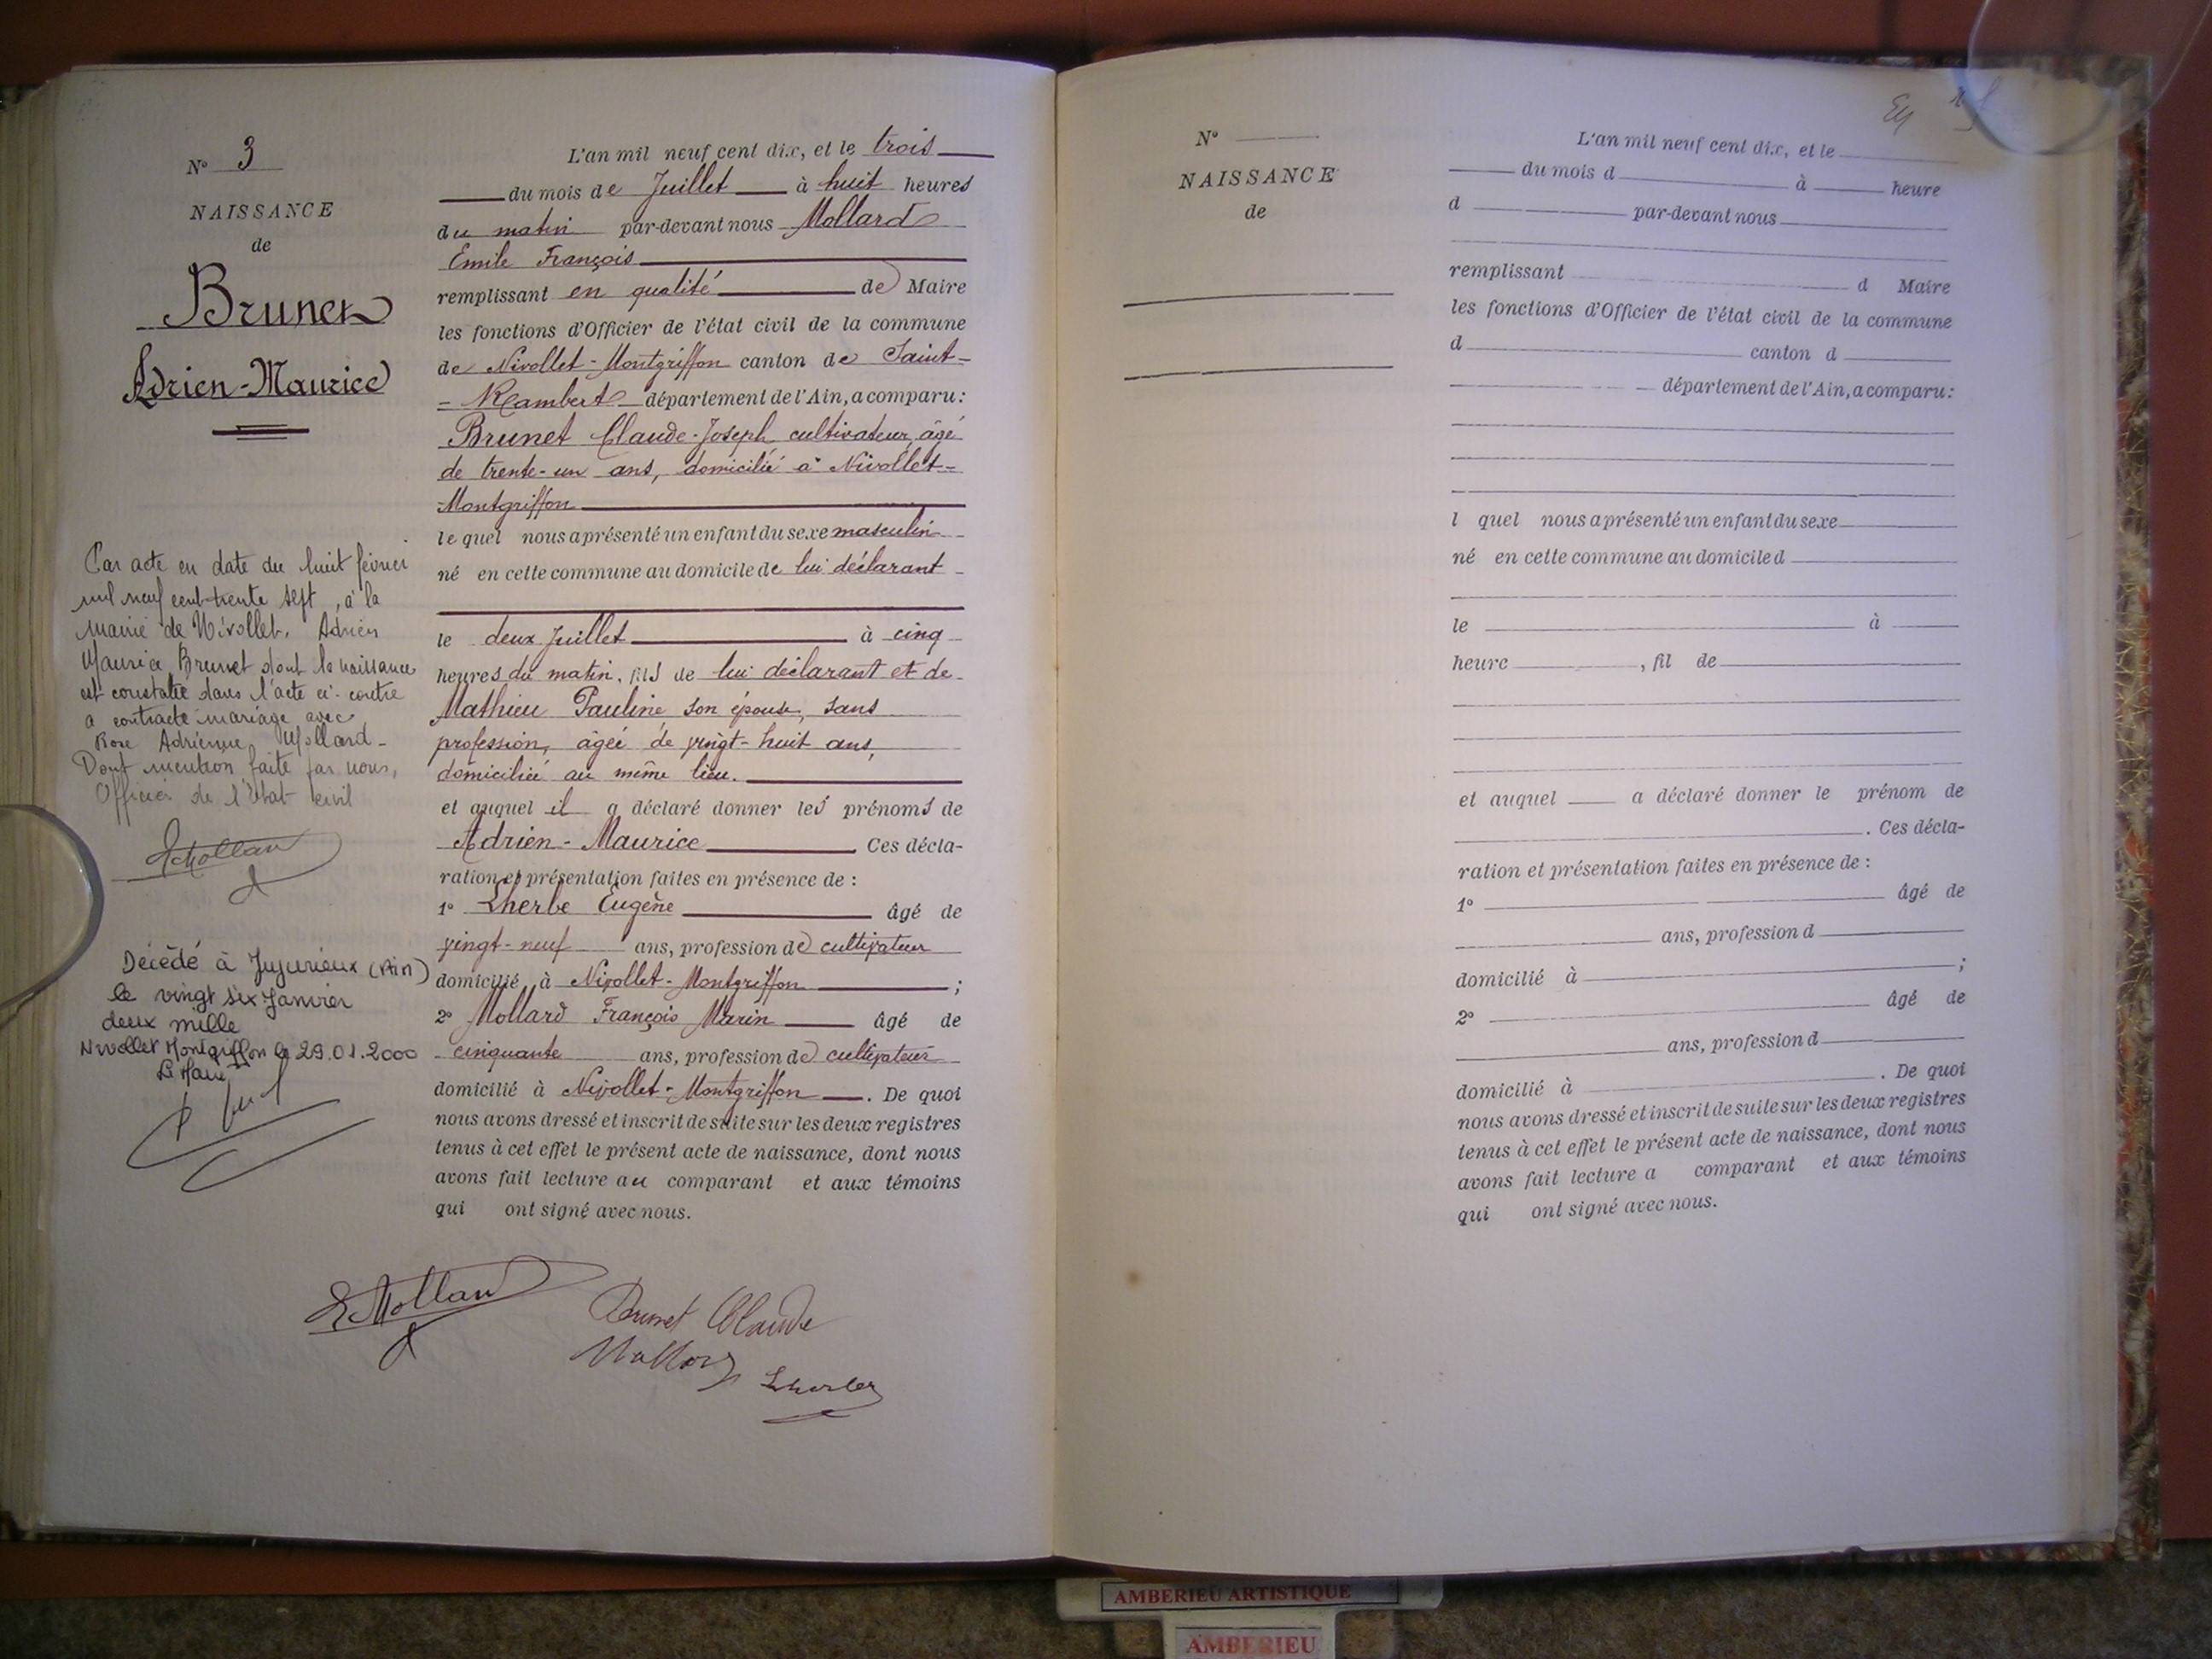 N° 3
NAISSANCE
de
Brunet
Adrien-Maurice
Par acte en date du huit février
mil neuf cent trente sept, à la
mairie de Nivollet. Adrien
Maurice Brunet dont la naissance
est constatée dans l'acte ci-contre
a contracté mariage avec
Rose Adrienne Mollard -
Dont mention faite par nous,
Officier de l'Etat civil
Décédé à Jujurieux (Ain)
le vingt six Janvier
deux mille
Nivollet Montgriffon le 29.01.2000
Le Maire
L'an mil neuf cent dix, et le trois
du mois de Juillet à huit heures
du matin par-devant nous Mollard
Emile François
remplissant en qualité de Maire
les fonctions d'Officier de l'état civil de la commune
de Nivollet-Montgriffon canton de Saint-
-Rambert département de l'Ain, a comparu:
Brunet Claude-Joseph cultivateur, âgé
de trente-un ans, domicilié à Nivollet-
-Montgriffon
lequel nous a présenté un enfant du sexe masculin
né en cette commune au domicile de lui déclarant
le deux Juillet à cinq
heures du matin, fils de lui déclarant et de
Mathieu Pauline son épouse, sans
profession, âgée de vingt-huit ans,
domiciliée au même lieu.
et auquel il a déclaré donner les prénoms de
Adrien-Maurice Ces décla-
ration et présentation faites en présence de :
1° Lherbe Eugène âgé de
vingt-neuf ans, profession de cultivateur
domicilié à Nivollet-Montgriffon ;
2° Mollard François Marin âgé de
cinquante ans, profession de cultivateur
domicilié à Nivollet-Montgriffon . De quoi
nous avons dressé et inscrit de suite sur les deux registres
tenus à cet effet le présent acte de naissance, dont nous
avons fait lecture au comparant et aux témoins
qui ont signé avec nous.
E Mollard
Brunet Claude
Mollard
Lherbe
N°
NAISSANCE
de
L'an mil neuf cent dix, et le
du mois d à heure
d par-devant nous
remplissant d Maire
les fonctions d'Officier de l'état civil de la commune
d canton d
département de l'Ain, a comparu:
l quel nous a présenté un enfant du sexe
né en cette commune au domicile d
le à
heure , fil de
et auquel a déclaré donner le prénom de
. Ces décla-
ration et présentation faites en présence de :
1° âgé de
ans, profession d
domicilié à ;
2° âgé de
ans, profession d
domicilié à . De quoi
nous avons dressé et inscrit de suite sur les deux registres
tenus à cet effet le présent acte de naissance, dont nous
avons fait lecture a comparant et aux témoins
qui ont signé avec nous.
AMBERIEU ARTISTIQUE
AMBERIEU